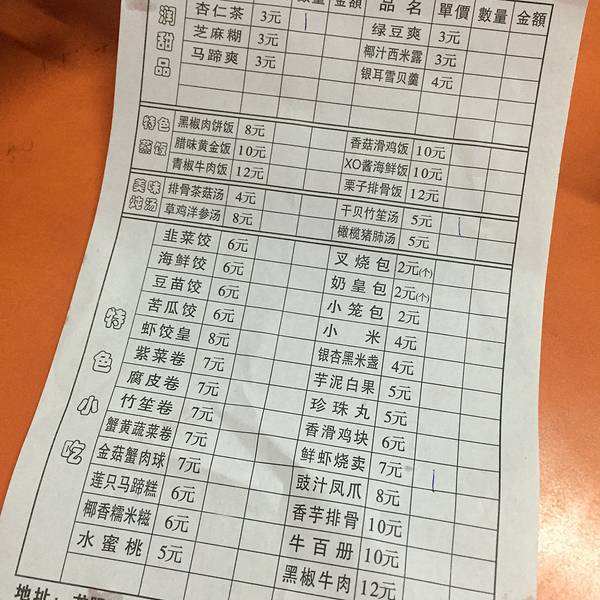 數量 金額 品名 單價 數量 金額
润甜品
杏仁茶 3元 绿豆爽 3元
芝麻糊 3元 椰汁西米露 3元
马蹄爽 3元 银耳雪贝羹 4元
特色蒸饭
黑椒肉饼饭 8元 香菇滑鸡饭 10元
腊味黄金饭 10元 XO酱海鲜饭 10元
青椒牛肉饭 12元 栗子排骨饭 12元
美味炖汤
排骨茶菇汤 4元 干贝竹笙汤 5元
草鸡洋参汤 8元 橄榄猪肺汤 5元
特色小吃
韭菜饺 6元 叉烧包 2元(个)
海鲜饺 6元 奶皇包 2元(个)
豆苗饺 6元 小笼包 2元
苦瓜饺 6元 小米 4元
虾饺皇 8元 银杏黑米盏 4元
紫菜卷 7元 芋泥白果 5元
腐皮卷 7元 珍珠丸 5元
竹笙卷 7元 香滑鸡块 6元
蟹黄蔬菜卷 7元 鲜虾烧卖 7元
金菇蟹肉球 7元 豉汁凤爪 8元
莲只马蹄糕 6元 香芋排骨 10元
椰香糯米糍 6元 牛百册 10元
水蜜桃 5元 黑椒牛肉 12元
地址: